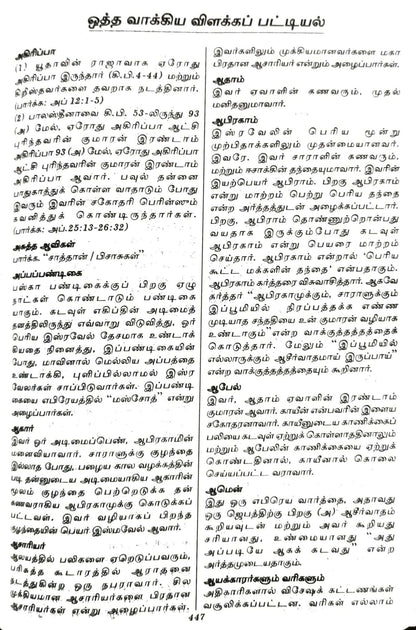 ஒத்த வாக்கிய விளக்கப் பட்டியல்
அகிரிப்பா
(1) யூதாவின் ராஜாவாக ஏரோது
அகிரிப்பா இருந்தார் (கி.பி.4-44) மற்றும்
கிறிஸ்தவர்களை தவறாக நடத்தினார்.
(பார்க்க: அப் 12:1-5)
(2) பாலஸ்தீனாவை கி.பி. 53-லிருந்து 93
(அ) மேல், ஏரோது அகிரிப்பா ஆட்சி
புரிந்தவரின் குமாரன் இரண்டாம்
அகிரிப்பா 93 (அ) மேல், ஏரோது அகிரிப்பா
ஆட்சி புரிந்தவரின் குமாரன் இரண்டாம்
அகிரிப்பா ஆவார். பவுல் தன்னை
பாதுகாத்துக் கொள்ள வாதாடும் போது
இவரும் இவரின் சகோதரி பெரினீஸும்
கவனித்துக் கொண்டிருந்தார்கள்.
(பார்க்க: அப்.25:13-26:32)
அசுத்த ஆவிகள்
பார்க்க. "சாத்தான் / பிசாசுகள்"
அப்பப்பண்டிகை
பஸ்கா பண்டிகைக்குப் பிறகு ஏழு
நாட்கள் கொண்டாடும் பண்டிகை
யாகும். கடவுள் எகிப்தின் அடிமைத்
தனத்திலிருந்து எவ்வாறு விடுவித்து, ஓர்
பெரிய இஸ்ரவேல் தேசமாக உண்டாக்
கியதை நினைத்து, இப்பண்டிகையின்
போது, மாவினால் மெல்லிய அப்பத்தை
உண்டாக்கி, புளிப்பில்லாமல் இஸ்ர
வேலர்கள் சாப்பிடுவார்கள். இப்பண்டி
கையை எபிரேயத்தில் "மஸ்சோத்" என்று
அழைப்பார்கள்.
ஆகார்
இவர் ஓர் அடிமைப்பெண், ஆபிரகாமின்
மனைவியாவார். சாராளுக்கு குழந்தை
இல்லாத போது, பழைய கால வழக்கத்தின்
படி தன்னுடைய அடிமையாகிய ஆகாரின்
மூலம் குழந்தை பெற்றெடுக்க தன்
கணவராகிய ஆபிரகாமுக்கு கொடுக்கப்
பட்டவள். இவர் வழியாகப் பிறந்த
குழந்தையின் பெயர் இஸ்மவேல் ஆவார்.
ஆசாரியர்
ஆலயத்தில் பலிகளை ஏறெடுப்பவரும்,
பரிசுத்த கூடாரத்தில் ஆராதனை
நடத்துகின்ற ஒரு நபராவார். சில
முக்கியமான ஆசாரியர்களை பிரதான
ஆசாரியர்கள் என்று அழைப்பார்கள்.
இவர்களிலும் முக்கியமானவர்களை மகா
பிரதான ஆசாரியர் என்றும் அழைப்பார்கள்.
ஆதாம்
இவர் ஏவாளின் கணவரும், முதல்
மனிதனுமாவார்.
ஆபிரகாம்
இஸ்ரவேலின் பெரிய மூன்று
முற்பிதாக்களிலும் முதன்மையானவர்.
இவரே, இவர் சாராளின் கணவரும்,
மற்றும் ஈசாக்கின் தந்தையுமாவார். இவரின்
இயற்பெயர் ஆபிராம். பிறகு ஆபிரகாம்
என்று மாற்றம் பெற்று பெரிய தந்தை
என்ற அர்த்தத்துடன் அழைக்கப்பட்டார்.
பிறகு, ஆபிராம் தொண்ணூற்றொன்பது
வயதாக இருக்கும்போது கடவுள்
ஆபிரகாம் என்று பெயரை மாற்றம்
செய்தார். ஆபிராகாம் என்றால் 'பெரிய
கூட்ட மக்களின் தந்தை' என்பதாகும்.
ஆபிரகாம் கர்த்தரை விசுவாசித்தார். ஆகவே
கர்த்தர் "ஆபிரகாமுக்கும், சாராளுக்கும்
இப்பூமியில் நிரப்பத்தக்க எண்ண
முடியாத சந்ததியை உன் குமாரன் வழியாக
உண்டாகும்" என்ற வாக்குத்தத்தத்தைக்
கொடுத்தார். மேலும் "இப்பூமியில்
எல்லாருக்கும் ஆசீர்வாதமாய் இருப்பாய்"
என்ற வாக்குத்தத்தத்தையும் கூறினார்.
ஆபேல்
இவர், ஆதாம் ஏவாளின் இரண்டாம்
குமாரன் ஆவார். காயீன் என்பவரின் இளைய
சகோதரனாவார். காயீனுடைய காணிக்கைப்
பலியை கடவுள் ஏற்றுக் கொள்ளாததினாலும்
மற்றும் ஆபேலின் காணிக்கையை ஏற்றுக்
கொண்டதினால், காயீனால் கொலை
செய்யப்பட்ட வராவார்.
ஆமென்
இது ஒரு எபிரெய வார்த்தை, அதாவது
ஒரு ஜெபத்திற்கு பிறகு (அ) ஆசீர்வாதம்
கூறியவுடன் மற்றும் அவர் கூறியது
சரியானது, உண்மையானது "அது
அப்படியே ஆகக் கடவது" என்ற
அர்த்தமுடையதாகும்.
ஆயக்காரர்களும் வரிகளும்
அதிகாரிகளால் விசேஷக் கட்டணங்கள்
வசூலிக்கப்பட்டன. வரிகள் எல்லாம்
447